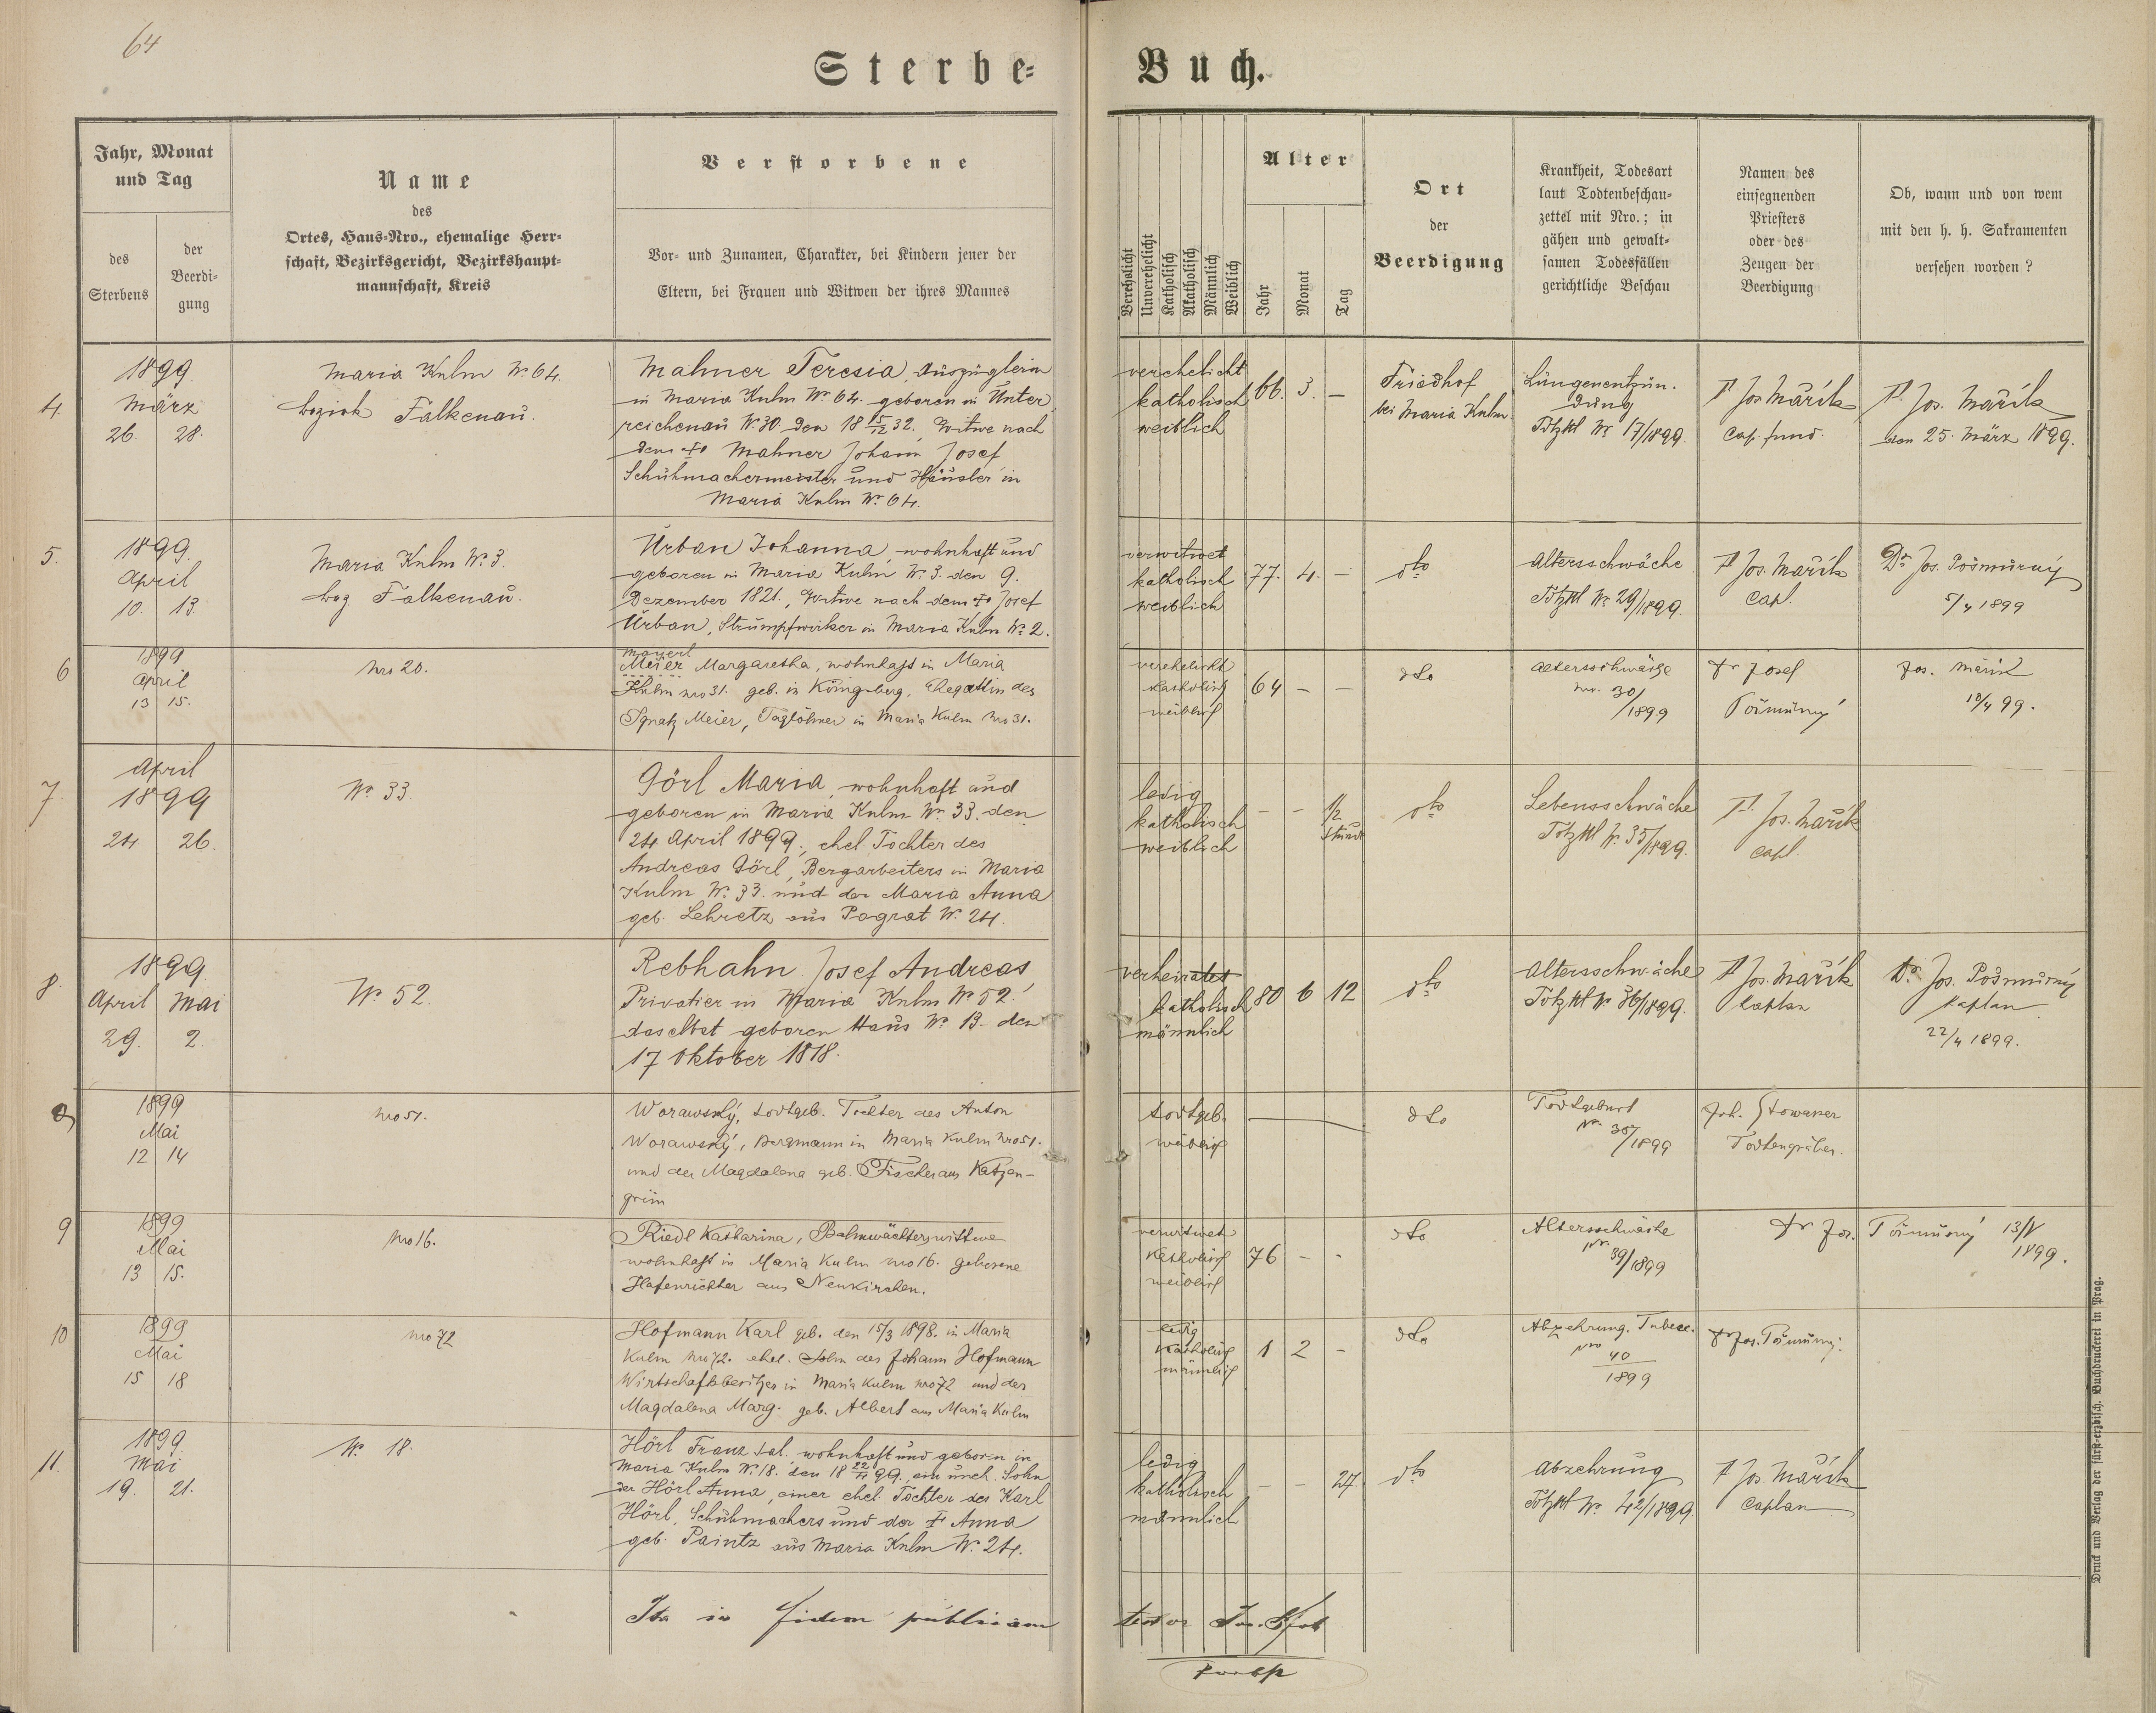 64
Sterbe-
Buch.
Jahr, Monat
und Tag
des
Sterbens
der
Beerdi-
gung
Name
des
Ortes, Haus-Nro., ehemalige Herr-
schaft, Bezirksgericht, Bezirkshaupt-
mannschaft, Kreis
Verstorbene
Vor- und Zunamen, Charakter, bei Kindern jener der
Eltern, bei Frauen und Witwen der ihres Mannes
Verehelicht
Unverehelicht
Katholisch
Akatholisch
Männlich
Weiblich
Alter
Jahr
Monat
Tag
Ort
der
Beerdigung
Krankheit, Todesart
laut Todtenbeschau-
zettel mit Nro.; in
gähen und gewalt-
samen Todesfällen
gerichtliche Beschau
Namen des
einsegnenden
Priesters
oder des
Zeugen der
Beerdigung
Ob, wann und von wem
mit den h. h. Sakramenten
versehen worden?
4.
1899
März
26. 28.
Maria Kulm Nr. 64.
bezirk Falkenau.
Mahner Teresia, Auszüglerin
in Maria Kulm Nr. 64. geboren in Unter
reichenau Nr. 30 den 18 15/12 32. Witwe nach
dem Mahner Johann Josef
Schuhmachermeister und Häusler in
Maria Kulm Nr. 64.
verehelicht
katholisch
weiblich
66. 3. —
Friedhof
bei Maria Kulm.
Lungenentzün.
dung
Totzttl Nr. 17/1899.
P. Jos Mařík
Cap. fund.
P. Jos. Mařík
den 25. März 1899.
5.
1899.
April
10. 13.
Maria Kulm Nr. 3.
bzg Falkenau.
Urban Johanna wohnhaft und
geboren in Maria Kulm Nr. 3. den 9.
Dezember 1821., Witwe nach dem Josef
Urban, Strumpfwirker in Maria Kulm Nr. 2.
verwitwet
katholisch
weiblich
77. 4. —
dto
Altersschwäche
Totzttl Nr. 29/1899.
P. Jos. Mařík
Capl.
Dr. Jos. Pošmurný
5/4 1899
6
1899
April
13 15.
Nro 20.
Mayerl
Meier Margaretha, wohnhaft in Maria
Kulm nro 31. geb. in Königsberg, Ehegattin des
Ignatz Meier, Taglöhner in Maria Kulm Nro 31.
verehelicht
katholisch
weiblich
64 — —
dto
Altersschwäche
nro. 30/
/1899
Dr Josef
Pošmurný
Jos. Mařík
12/4 99.
7.
April
1899
24 26.
Nr. 33
Görl Maria, wohnhaft und
geboren in Maria Kulm Nr. 33. den
24. April 1899., ehel. Tochter des
Andreas Görl, Bergarbeiters in Maria
Kulm Nr. 33. und der Maria Anna
geb. Lehretz aus Pograt Nr. 24.
ledig
katholisch
weiblich
— — 1/2
Stunde
dto
Lebensschwäche
Totzttl Nr. 35/1899.
P. Jos. Mařík
Capl.
8.
1899.
April Mai
29. 2.
Nr. 52.
Rebhahn Josef Andreas
Privatier in Maria Kulm Nr. 52.
daselbst geboren Haus Nr. 13. den
17 Oktober 1818.
verheiratet
katholisch
männlich
80 6 12
dto
Altersschwäche
Totzttl Nr. 36/1899.
P. Jos. Mařík
Kaplan
Dr. Jos. Pošmurný
Kaplan
22/4 1899.
1899
Mai
12 14
Nro 51.
Worawský, todtgeb. Tochter des Anton
Worawský, Bergmann in Maria Kulm Nro 51.
und der Magdalena geb. Fischer aus Katzen-
grün
todtgeb.
weiblich
dto
Todtgeburt
Nr. 38/
/1899
Joh. Stowasser
Todtengräber.
9
1899
Mai
13 15.
Nro 16.
Riedl Katharina, Bahnwächterswittwe
wohnhaft in Maria Kulm nro 16. geborene
Hafenrichter aus Neukirchen.
verwitwet
katholisch
weiblich
76 — -
dto
Altersschwäche
Nr. 39/1899
Dr Jos. Pošmurný 13/V
1899.
10
1899
Mai
15 18
Nro 72
Hofmann Karl geb. den 15/3 1898. in Maria
Kulm Nro 72. ehel. Sohn des Johann Hofmann
Wirtschaftsbesitzer in Maria Kulm Nro 72 und der
Magdalena Marg. geb. Albert aus Maria Kulm
ledig
katholisch
männlich
1 2 -
dto
Abzehrung. Tuberc.
Nro 40
1899
Dr Jos. Pošmurný.
11.
1899.
Mai
19. 21.
Nr. 18.
Hörl Franz Sal. wohnhaft und geboren in
Maria Kulm Nr. 18. den 18 22/4 99. ein uneh. Sohn
der Hörl Anna, einer ehel. Tochter des Karl
Hörl, Schuhmachers und der Anna
geb. Paintz aus Maria Kulm Nr. 24.
ledig
katholisch
männlich
— — 27.
dto
Abzehrung
Totzttl Nr. 42/1899.
P. Jos. Mařík
Caplan
Ita in fidem publicam
testor
Druck und Verlag der fürst-erzbisch. Buchdruckerei in Prag.